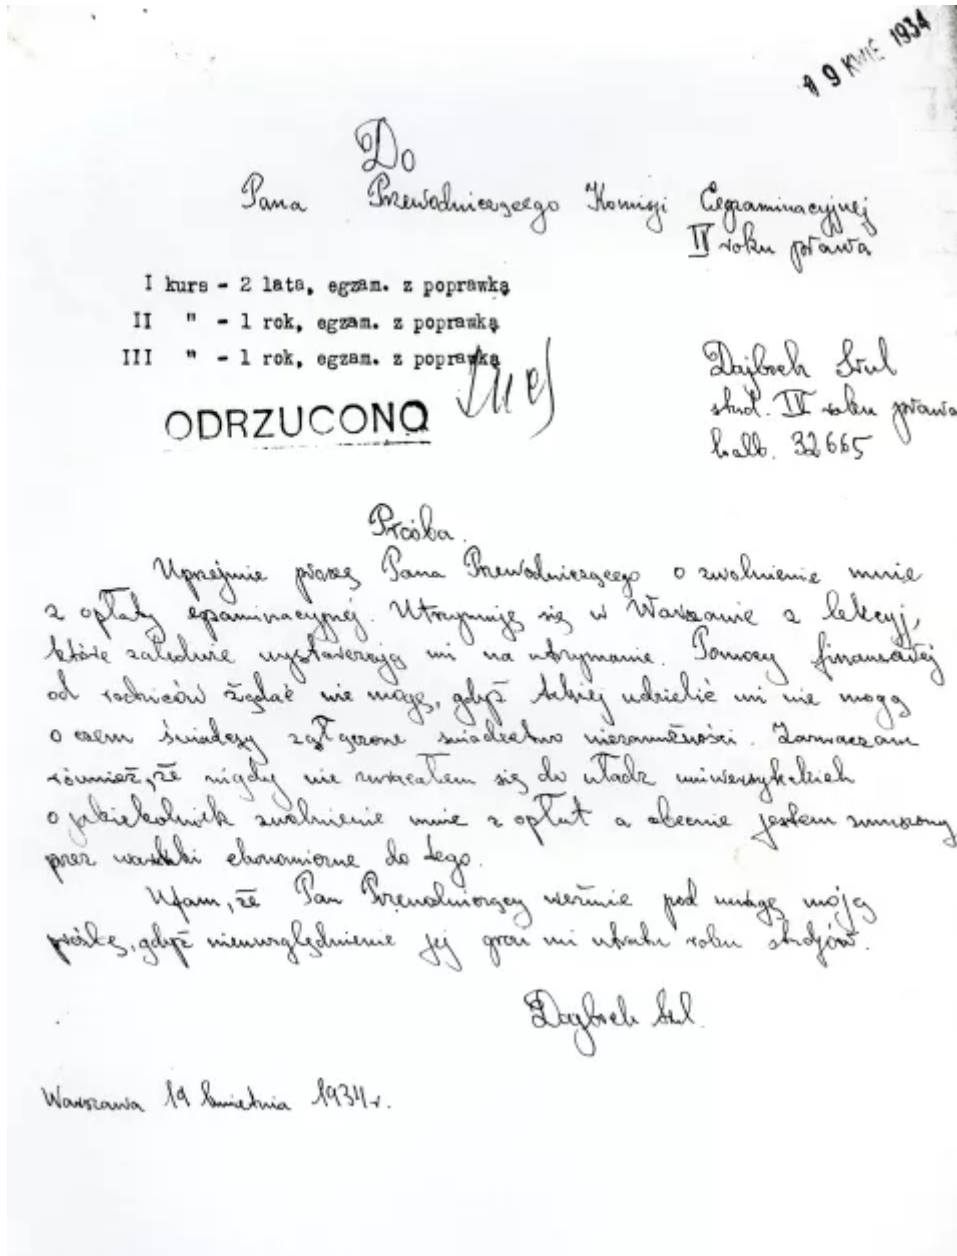 19 KWIE 1934
Do
Pana Przewodniczącego Komisji Egzaminacyjnej
IV roku prawa
I kurs - 2 lata, egzam. z poprawką
II " - 1 rok, egzam. z poprawką
III " - 1 rok, egzam. z poprawką
ODRZUCONO
Dajboch Srul
stud. IV roku prawa
N. alb. 32665
Prośba.
Uprzejmie proszę Pana Przewodniczącego o zwolnienie mnie
z opłaty egzaminacyjnej. Utrzymuję się w Warszawie z lekcyj,
które zaledwie wystarczają mi na utrzymanie. Pomocy finansowej
od rodziców żądać nie mogę, gdyż takiej udzielić mi nie mogą
o czem świadczy załączone świadectwo niezamożności. Zaznaczam
również, że nigdy nie zwracałem się do władz uniwersyteckich
o jakiekolwiek zwolnienie mnie z opłat a obecnie jestem zmuszony
przez warunki ekonomiczne do tego.
Ufam, że Pan Przewodniczący weźmie pod uwagę moją
prośbę, gdyż nieuwzględnienie jej grozi mi utratą roku studjów.
Dajboch Srul.
Warszawa 19 kwietnia 1934 r.